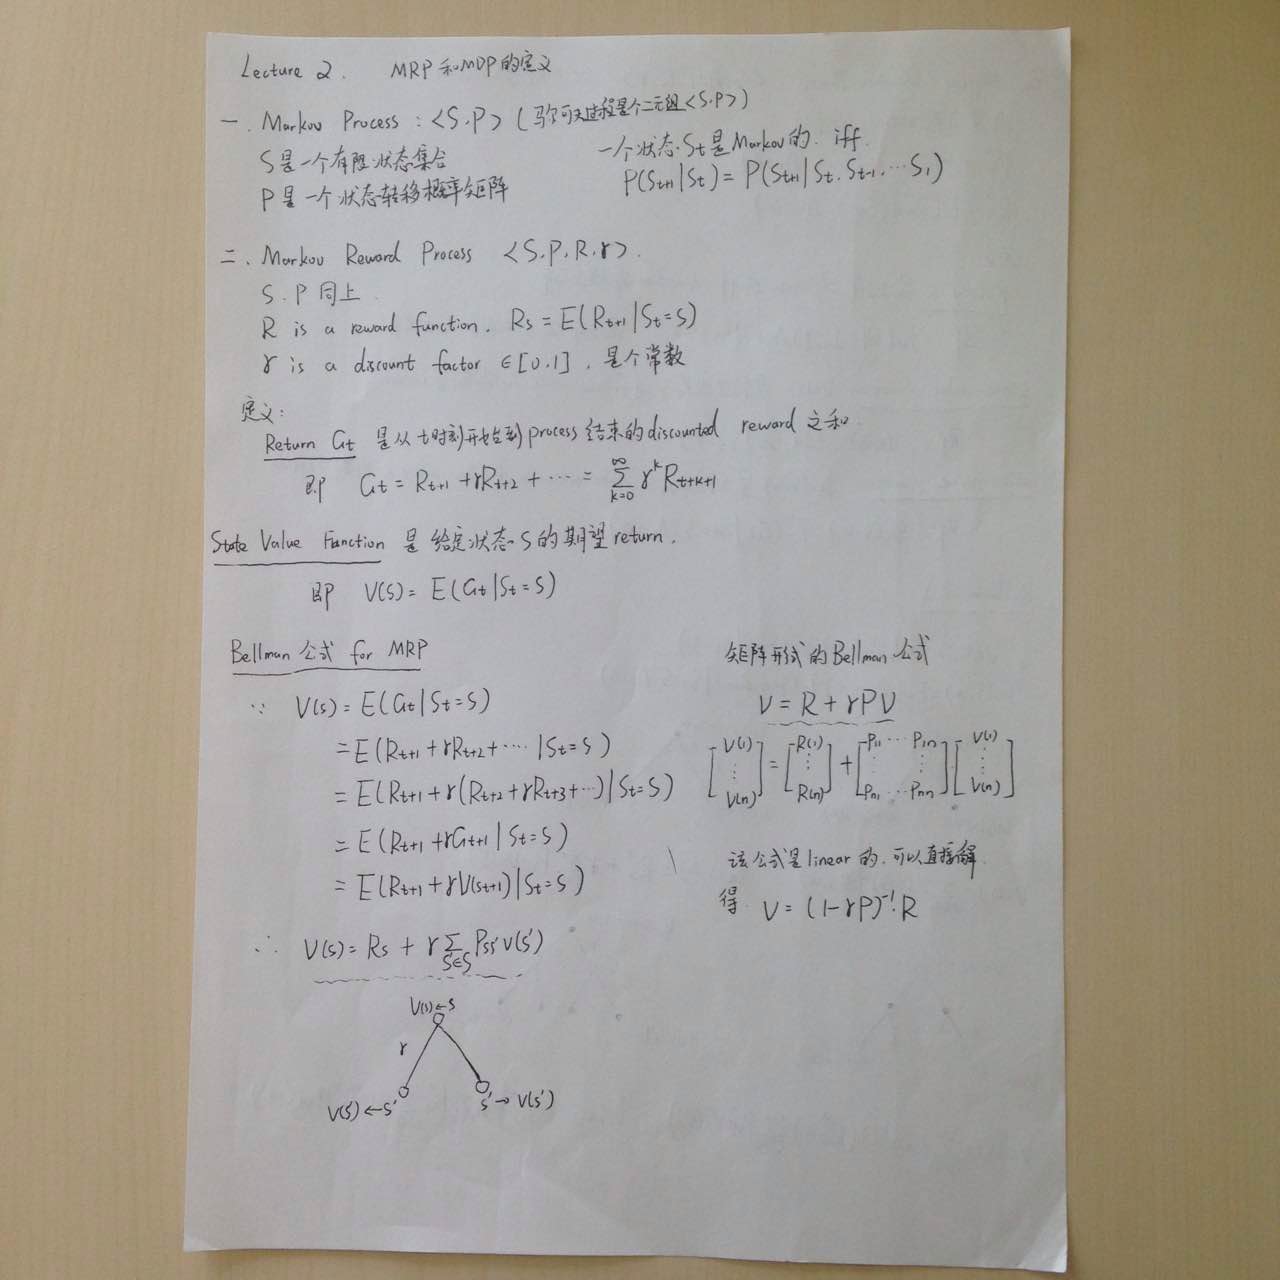 Lecture 2. MRP和MDP的定义
一. Markov Process : <S.P> (马尔可夫过程是个二元组<S.P>)
S是一个有限状态集合
P是一个状态转移概率矩阵
一个状态St是Markov的. iff.
P(St+1|St) = P(St+1|St.St-1.…S1)
二. Markov Reward Process <S.P.R.γ>.
S.P同上.
R is a reward function. Rs = E(Rt+1|St=S)
γ is a discount factor ∈[0.1]. 是个常数
定义:
Return Gt 是从t时刻开始到process结束的discounted reward之和.
即 Gt = Rt+1 + γRt+2 + … = ∑_{k=0}^{∞} γ^k Rt+k+1
State Value Function 是给定状态S的期望return.
即 V(S) = E(Gt|St=S)
Bellman公式 for MRP
∵ V(s) = E(Gt|St=S)
= E(Rt+1 + γRt+2 + …. |St=S)
= E(Rt+1 + γ(Rt+2 + γRt+3 + …)|St=S)
= E(Rt+1 + γGt+1|St=S)
= E(Rt+1 + γV(St+1)|St=S)
∴ V(s) = Rs + γ ∑_{S'∈S} Pss' V(s')
V(s)←s
r
V(s')←s' s'→V(s')
矩阵形式的Bellman公式
V = R + γPV
[V(1) ⋮ V(n)] = [R(1) ⋮ R(n)] + [P11 … P1n ⋮ ⋮ Pn1 … Pnn] [V(1) ⋮ V(n)]
该公式是linear的.可以直接解.
得. V = (1-γP)^-1·R